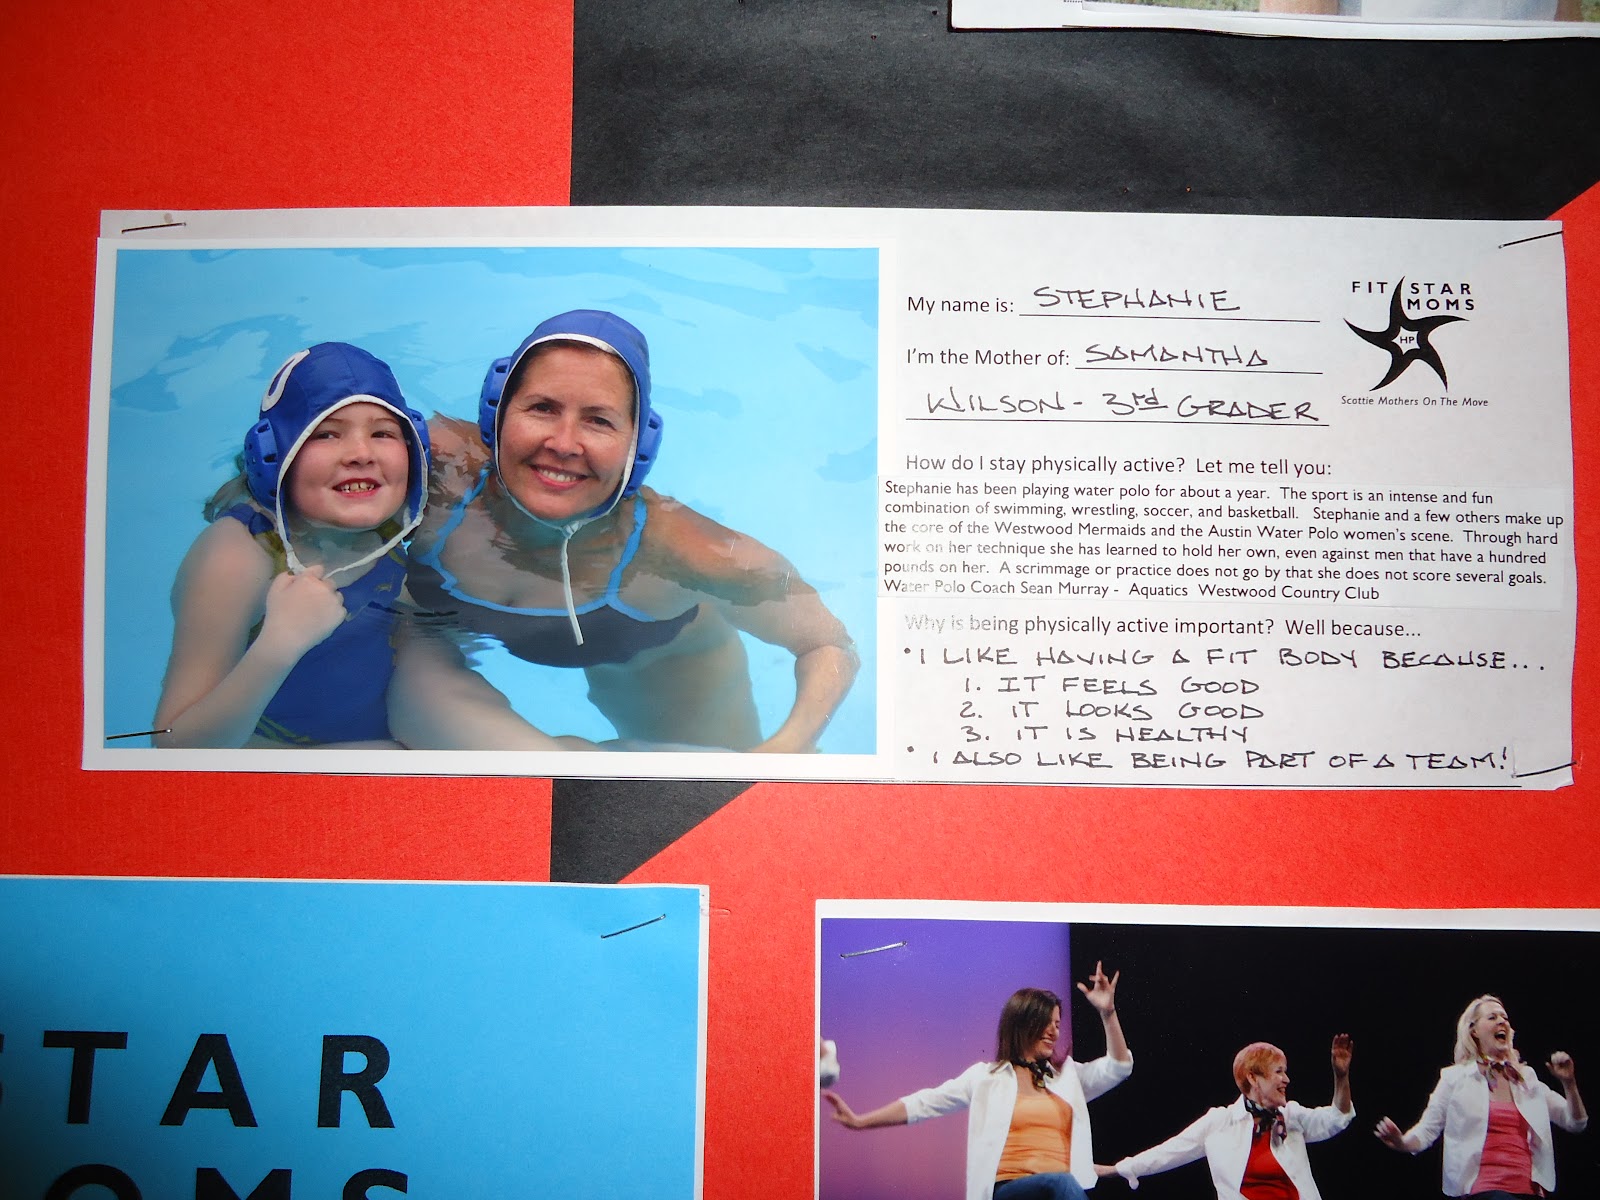 My name is: STEPHANIE
I'm the Mother of: SAMANTHA
WILSON - 3rd GRADER
FIT STAR
MOMS
HP
Scottie Mothers On The Move
How do I stay physically active? Let me tell you:
Stephanie has been playing water polo for about a year. The sport is an intense and fun
combination of swimming, wrestling, soccer, and basketball. Stephanie and a few others make up
the core of the Westwood Mermaids and the Austin Water Polo women's scene. Through hard
work on her technique she has learned to hold her own, even against men that have a hundred
pounds on her. A scrimmage or practice does not go by that she does not score several goals.
Water Polo Coach Sean Murray - Aquatics Westwood Country Club
Why is being physically active important? Well because...
• I LIKE HAVING A FIT BODY BECAUSE...
1. IT FEELS GOOD
2. IT LOOKS GOOD
3. IT IS HEALTHY
• I ALSO LIKE BEING PART OF A TEAM!
STAR
OMS